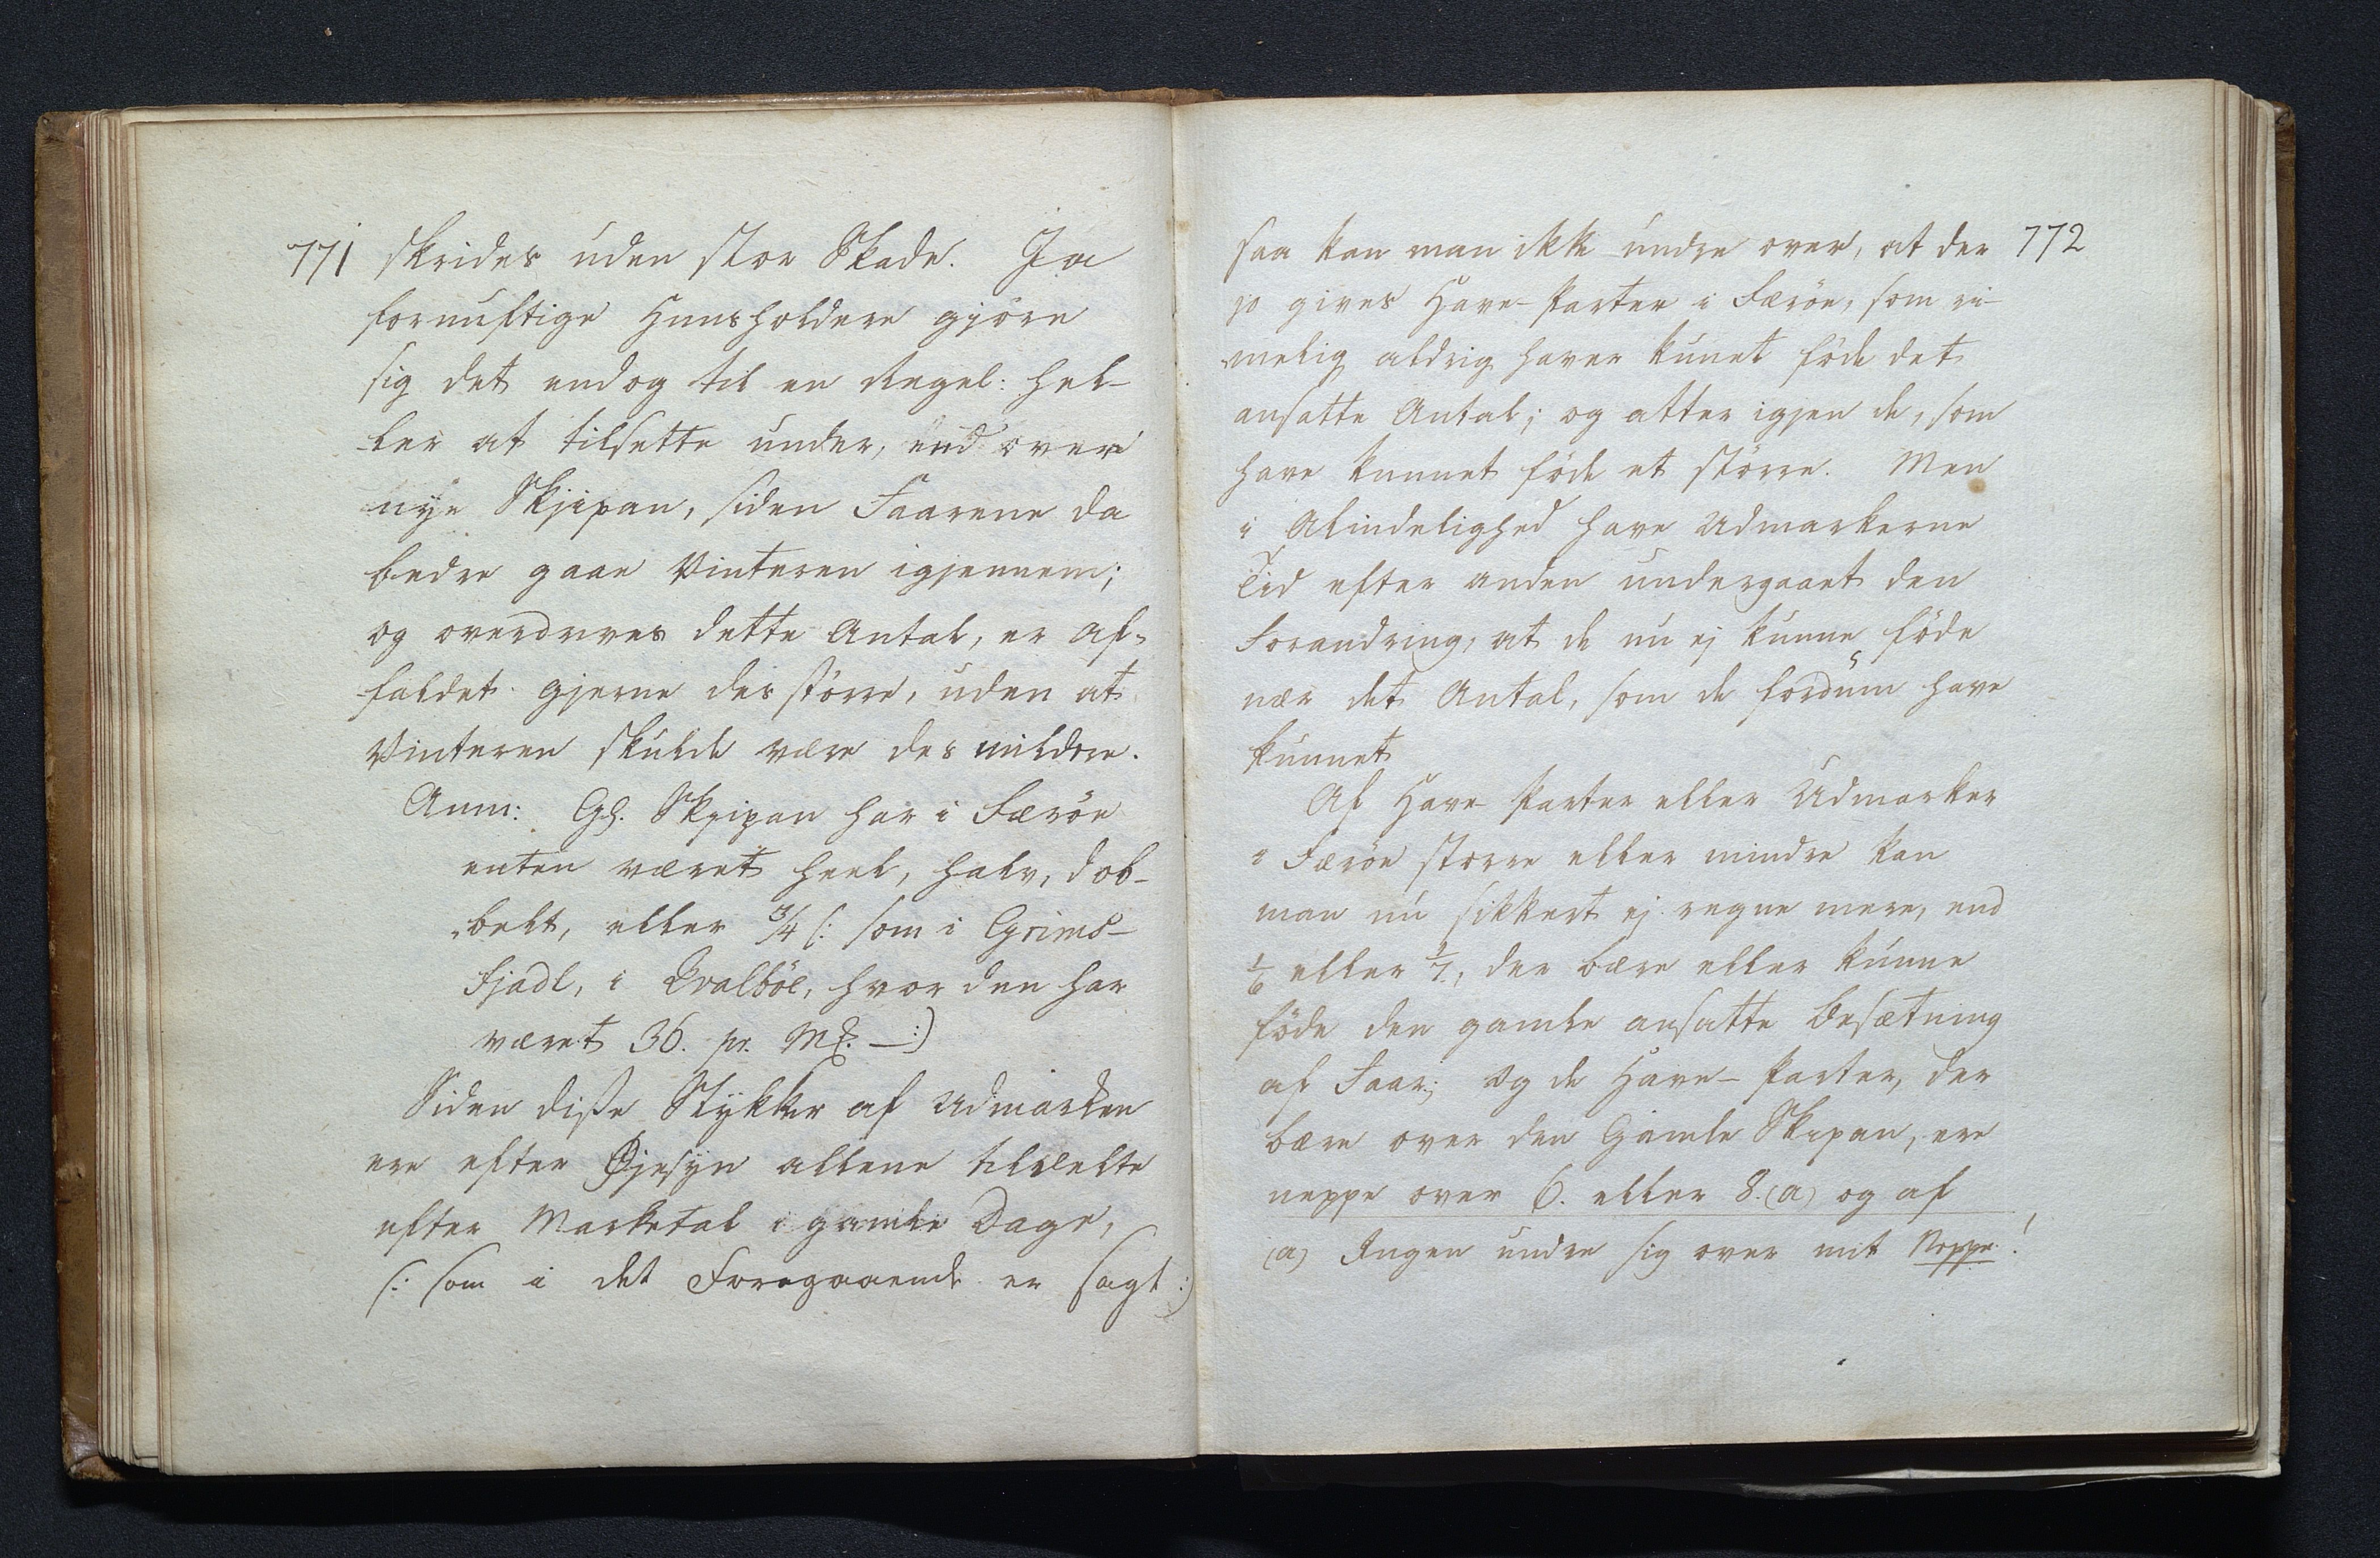 771 skrides uden stor Skade. Ja
fornuftige Huusholdere gjöre
sig det endog til en Regel: hel-
ler at tilsette under, end over
nye Skjipan, siden Faarene da
bedre gaae Vinteren igjennem;
og overdrives dette Antal, er Af-
faldet gjerne des större, uden at
Vinteren skulde være des mildere.
Anm: Gl. Skjipan har i Færöe
enten været heel, halv, dob-
belt, eller 3/4 (: som i Grims-
fjadl, i Qvalböe, hvor den har
været 36. pr. Mk. —:)
Siden disse Stykker af Udmarken
ere efter Øjesyn allene tildeelte
efter Marketal i gamle Dage,
(: som i det Foregaaende er sagt :)
saa kan man ikke undre over, at der 772
jo gives Have-Parter i Færöe, som ri-
melig aldrig haver kunet föde det
ansatte Antal; og atter igjen de, som
have kunnet föde et större. Men
i Alindelighed have Udmarkerne
Tid efter anden undergaaet den
Forandring, at de nu ej kunne föde
nær det Antal, som de fordum have
kunnet
Af Have-Parter eller Udmarker
i Færöe storre eller mindre kan
man nu sikkert ej regne mere, end
1/6 eller 1/7, der bære eller kunne
föde den gamle ansatte Besætning
af Faar; og de Have-Parter, der
bære over den Gamle Skipan, ere
neppe over 6. eller 8. (a) og af
(a) Ingen undre sig over mit Neppe!